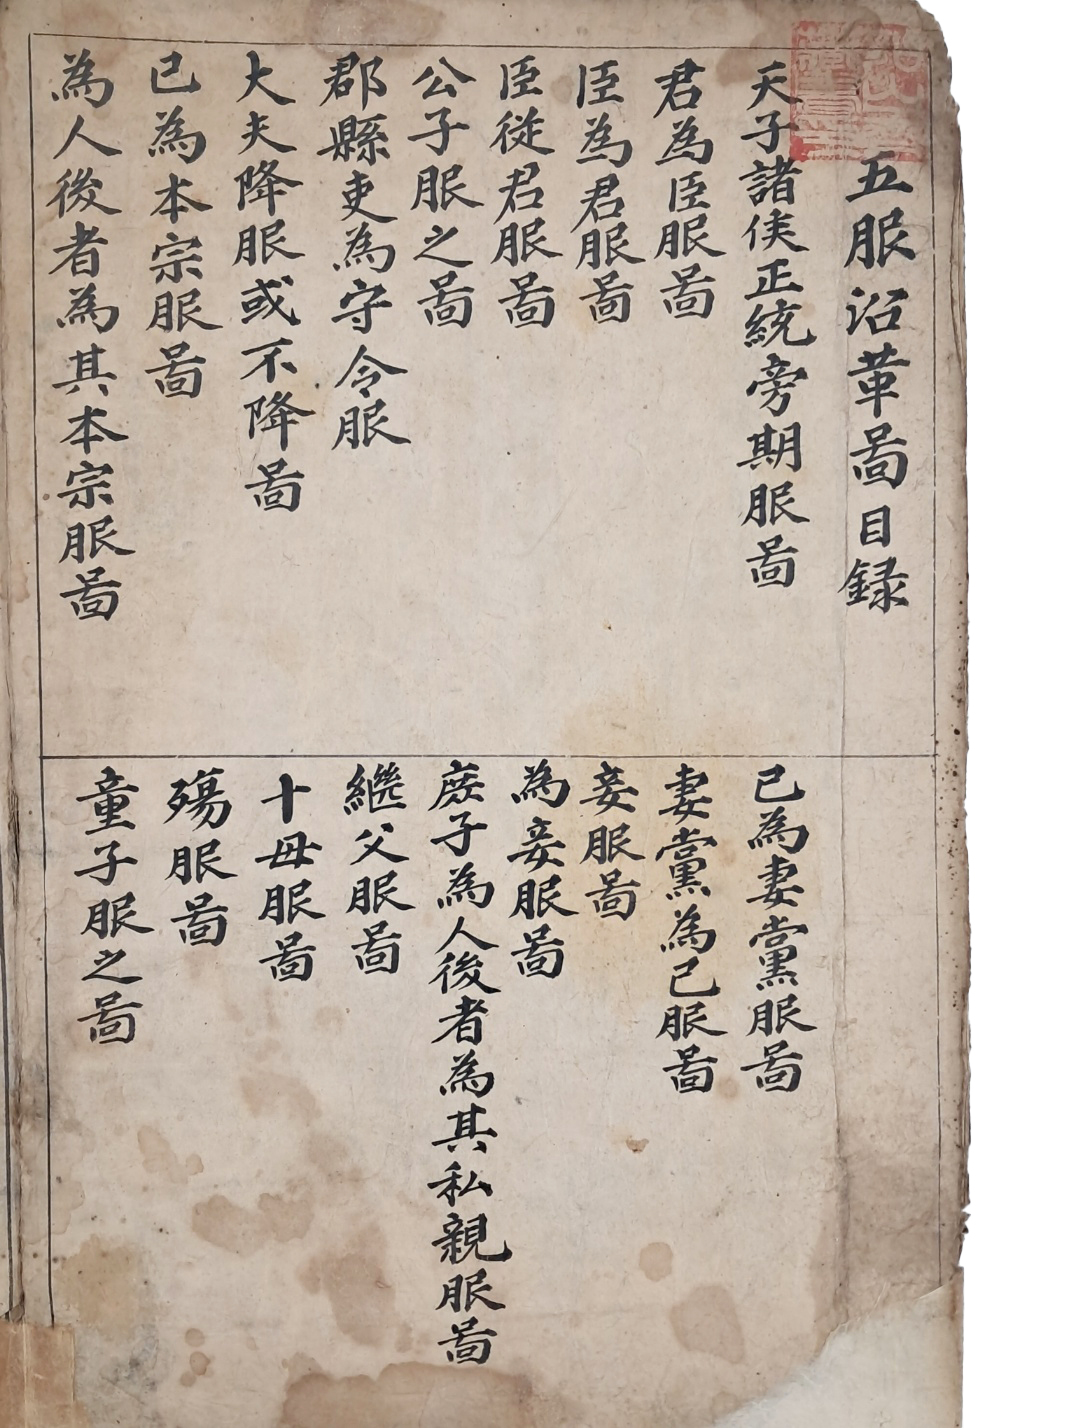 五服沿革啚目録
天子諸侯正統旁期服啚
君為臣服啚
臣為君服啚
臣従君服啚
公子服之啚
郡縣吏為守令服
大夫降服或不降啚
已為本宗服啚
為人後者為其本宗服啚
已為妻黨服啚
妻黨為已服啚
妾服啚
為妾服啚
庶子為人後者為其私親服啚
繼父服啚
十母服啚
殤服啚
童子服之啚